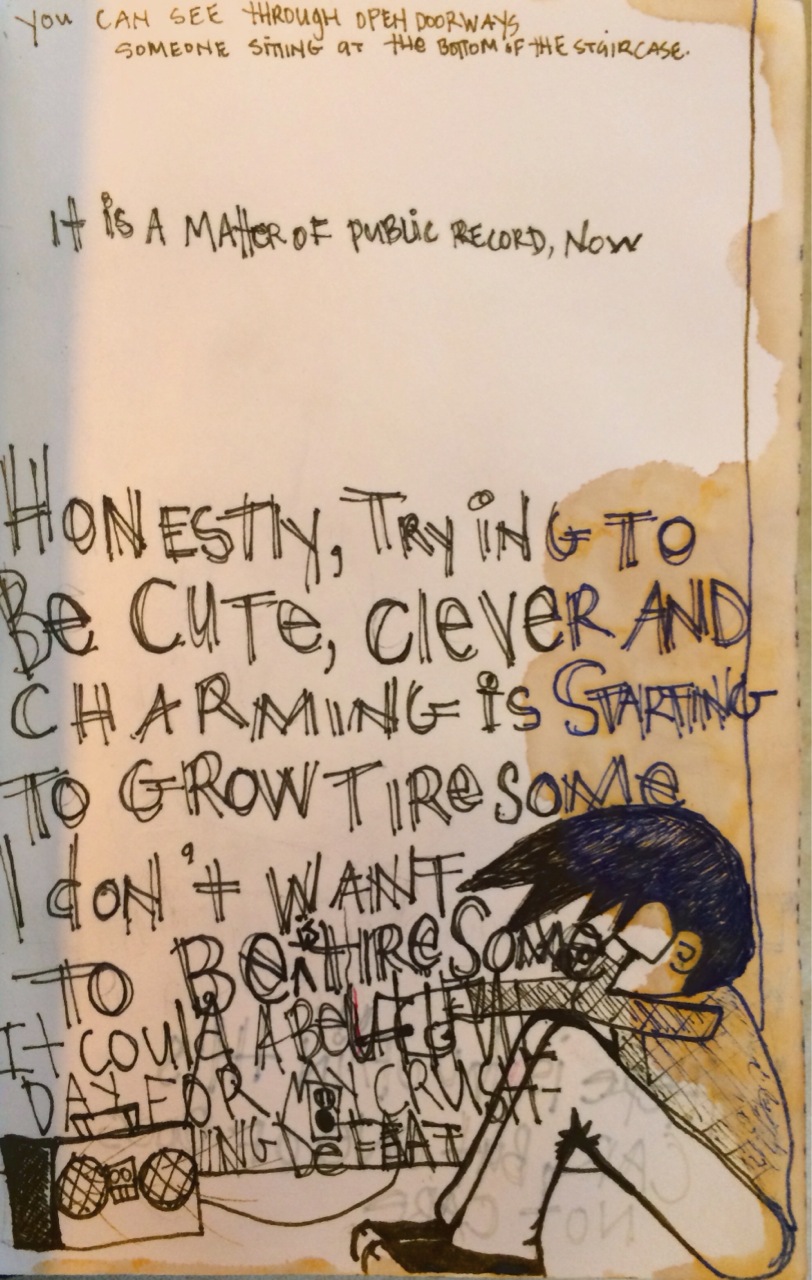 you CAN SEE THROUGH OPEN DOORWAYS
SOMEONE SITTING AT the BOTTOM OF THE STAIRCASE.
It is A MATTER OF PUBLIC RECORD, NOW
HONESTLY, TRYING TO
Be CUTe, CleveR AND
CHARMING is STARTING
TO GROW TIReSOMe
I don't WANT
TO Be TIReSOMe
It could A Be
DAY FOR MY CRUSH
ING DeFEAT